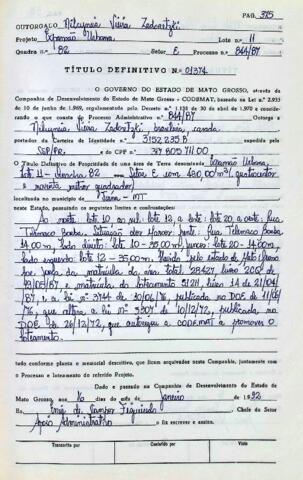 PAG. 375
OUTORGADO Nilcyméia Vieira Zadoretzki
Projeto Expansão Urbana Lote n.o 11
Quadra n.o 82 Setor E Processo n.o 844/87
TÍTULO DEFINITIVO N.o 01374
O GOVERNO DO ESTADO DE MATO GROSSO, através da
Companhia de Desenvolvimento do Estado de Mato Grosso - CODEMAT, baseado na Lei n.o 2.935
de 10 de junho de 1969, regulamentado pelo Decreto n.o 1.138 de 30 de abril de 1970 e conside-
rando o que consta do Processo Administrativo n.o 844/87 Outorga a
brasileira, casada
portador da Carteira de Identidade n.o 3152235 expedida pelo
SSP/Pr. e do CPF n.o
O Título Definitivo de Propriedade de uma área de terra denominada Expansão Urbana
Lote 11 - Quadra 82 - Setor E com 490,00m² (quatrocentos
e noventa metros quadrados)
localizada no município de - MT
neste Estado, passando os seguintes limites e confrontações:
Ao norte: lote 10, ao sul: lote 12, a leste: lote 20, a oeste: Rua
frente: Rua
14,00m, lado direito: lote 10 - 35,00m, fundos: lote 20 - 14,00m,
lado esquerdo: lote 12 - 35,00m. pelo estado de Mato Grosso
da matrícula da área total, 28427, livro 200 de
e matrícula do loteamento livro 14 de 21/04/
87, e a lei n.o 3744 de 10/06/76, publicada no DOE de 11/06/
76, que altera a lei n.o 3307 de 10/12/72, publicada no
DOE de 26/12/72, que autorizou a CODEMAT a promover o
loteamento.
tudo conforme planta e memorial descritivo, que ficam arquivados nesta Companhia, juntamente com
o Processo e loteamento do referido Projeto.
Dado e passado na Companhia de Desenvolvimento do Estado de
Mato Grosso, aos 16 dias do mês de janeiro de 1992
Eu, de Campos Figueiredo Chefe do Setor
Apoio Administrativo o fiz escrever e assino.
Transcrito por Conferido por Visto